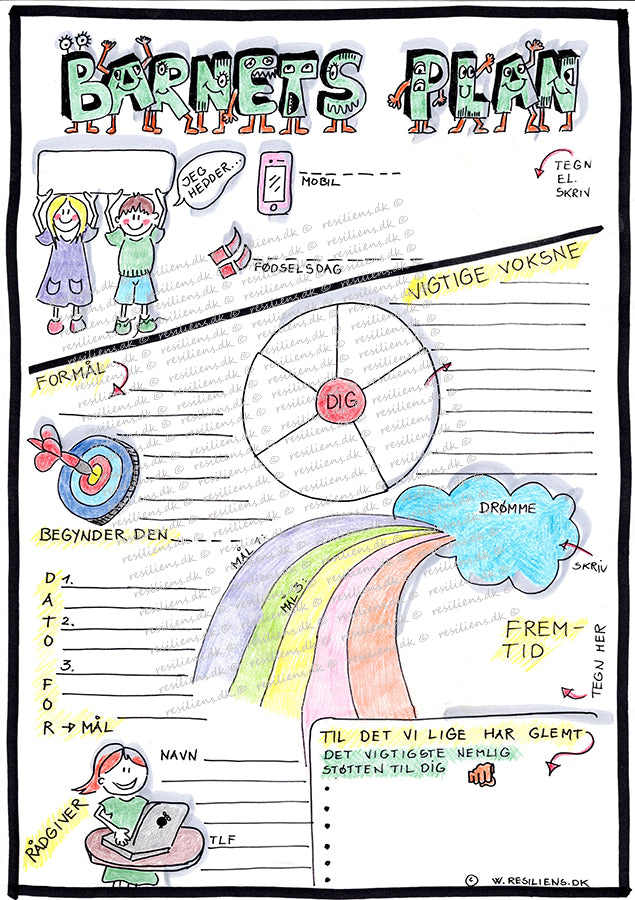 BARNETS PLAN
JEG
HEDDER...
MOBIL
TEGN
EL.
SKRIV
FØDSELSDAG
VIGTIGE VOKSNE
FORMÅL
DIG
BEGYNDER DEN
DRØMME
SKRIV
MÅL 1:
MÅL 3:
DATO FOR → MÅL
1.
2.
3.
FREM-
TID
TEGN HER
TIL DET VI LIGE HAR GLEMT
DET VIGTIGSTE NEMLIG
STØTTEN TIL DIG
RÅDGIVER
NAVN
TLF
© W.RESILIENS.DK
resiliens.dk ©